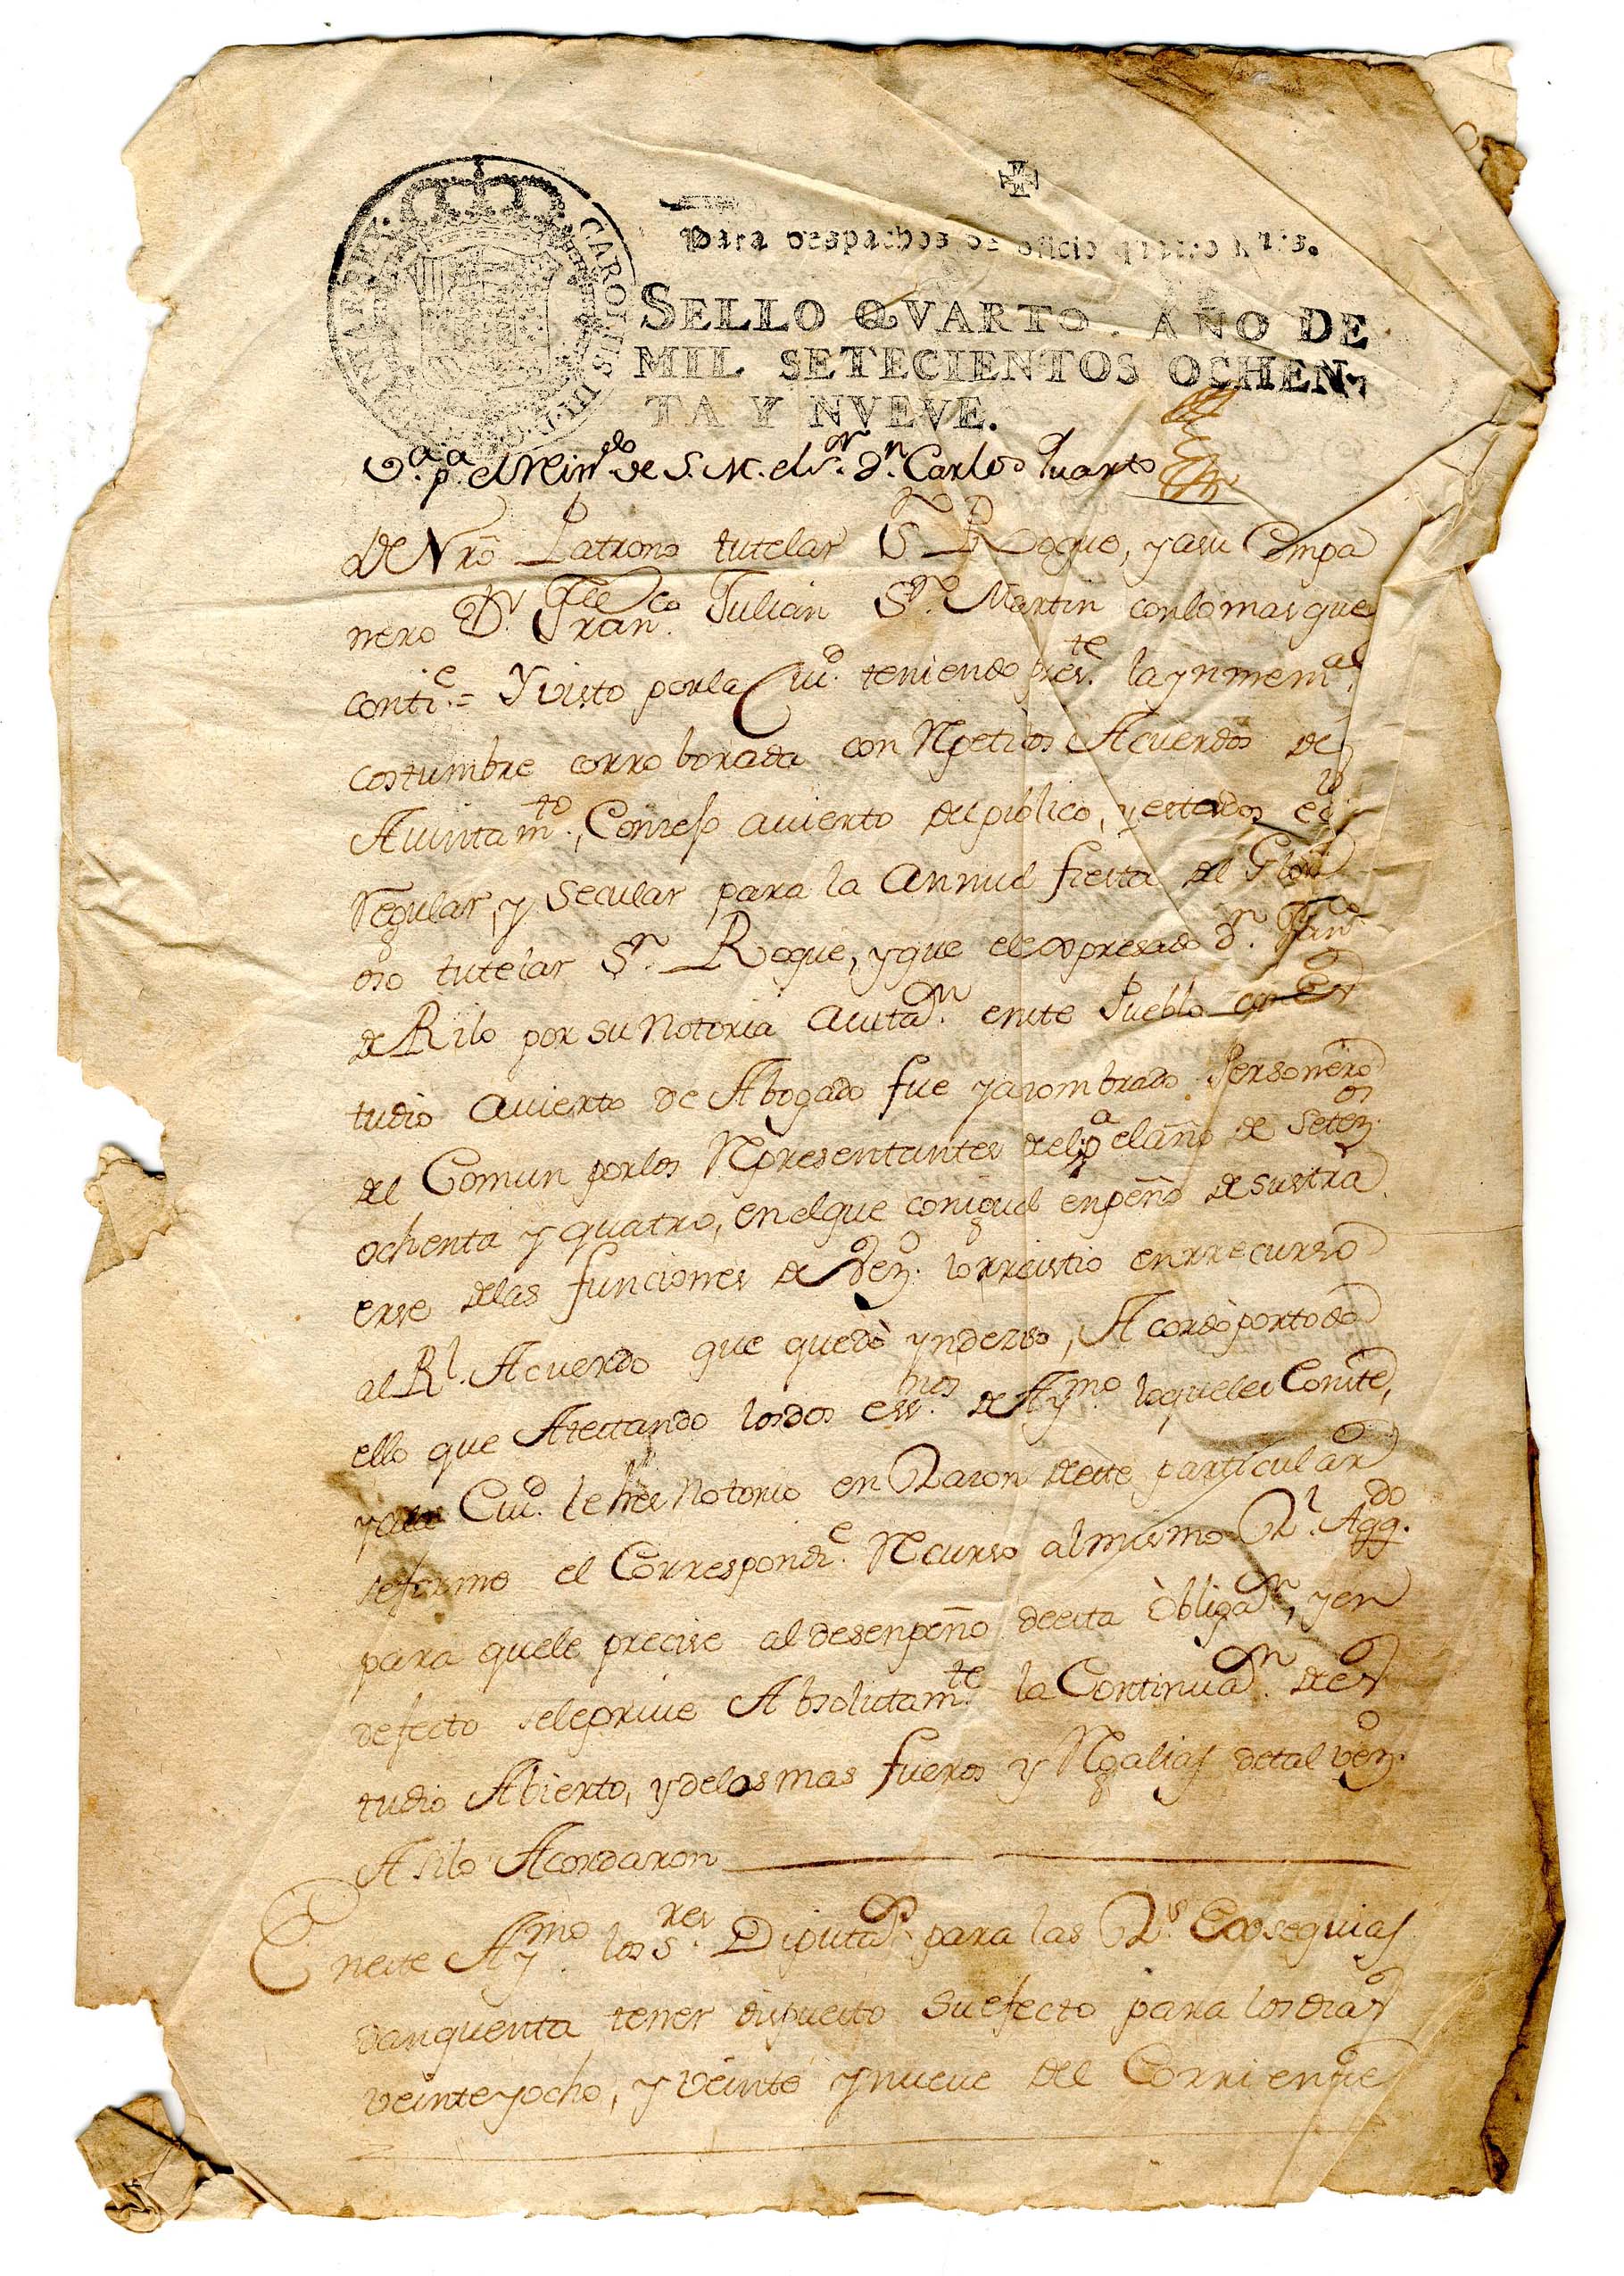 CAROLUS III. D. G.
HISPANIAR. REX.
Para despachos de oficio quatro mrs.
SELLO QVARTO. AÑO DE
MIL SETECIENTOS OCHEN-
TA Y NVEVE.
V.ª p.ª el Rein.do de S. M. el S.r d.n Carlos Quarto
de Nrô Patrono tutelar S.n Roque, y a su Compa
nero D.n Fran.co Julian S.n Martin con lo mas que
conti.e = Y visto por la Ciu.d teniendo pres.te la ynmem.al
costumbre corroborada con Repetidos Acuerdos de
Aiuntam.to, Consejo avierto del publico, y estados
Regular, y Secular para la Annual fiesta del Glori
oso tutelar S.n Roque, y que el expresado d.n Fran.co
de Rilo por su Notoria avita.n en este Pueblo con Es
tudio avierto de Abogado fue ya nombrado Personero
del Comun por los Representantes del p.a el año de Setez.os
ochenta y quatro, en el que con igual enpeño de sustra
erse de las funciones de Vez.o lo rresistio en rrecurso
al R.l Acuerdo que quedò yndeziso, Acordò por todo
ello que Atestando los dos ess.nos de Ay.mo lo que les Conste,
y a la Ciu.d le hes Notorio en Razon de este particular
se forme el Correspond.e Recurso al mismo R.l Agg.do
para que le precise al desenpeño de esta òbliga.n, y en
defecto se le prive Absolutam.te la Continua.n de Es
tudio Abierto, y de los mas fueros y Regalias de tal vez.o
Asi lo Acordaron
En este Ay.mo los S.res Diputa.s para las R.s Exsequias
dan quenta tener dispuesto su efecto para los dias
veinte y ocho, y veinte y nueve del Corriente